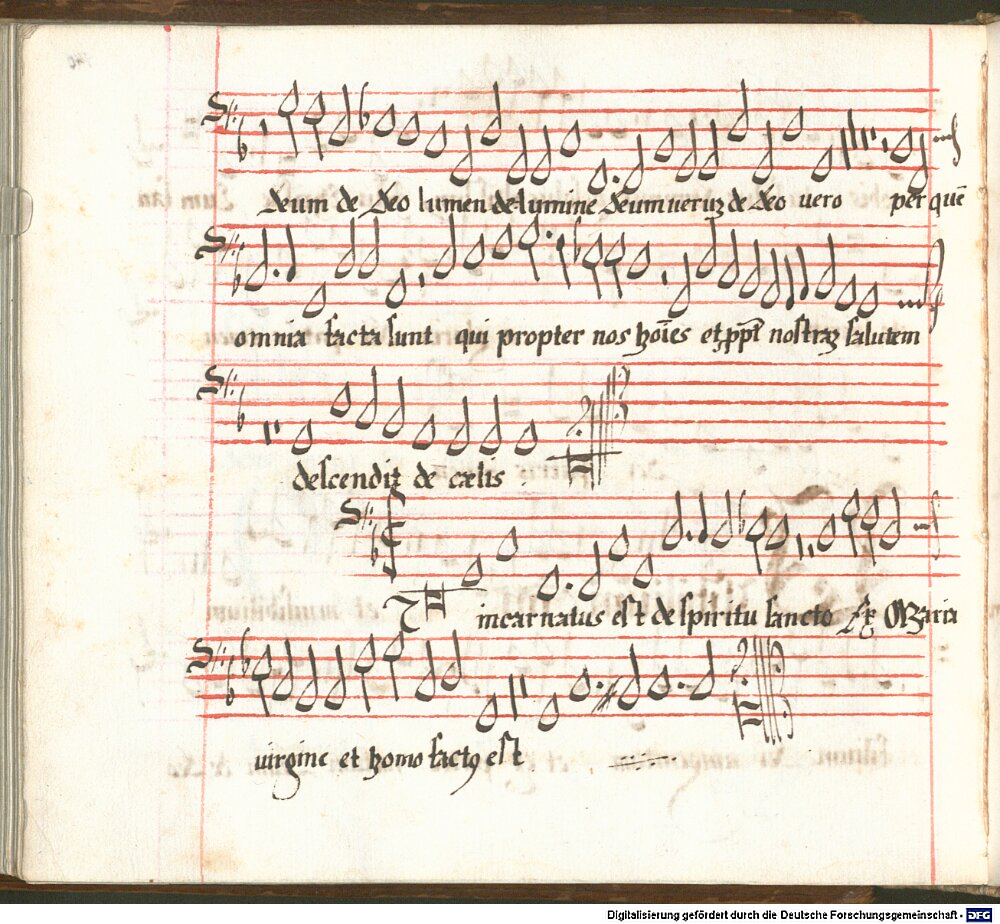 deum de deo lumen de lumine deum veruʒ de deo vero per quē
omnia facta sunt qui propter nos hoīes et ꝓpt nostraʒ salutem
descendit de cælis
Et incarnatus est de spiritu sancto Ex Maria
virgine et homo factꝰ est
Digitalisierung gefördert durch die Deutsche Forschungsgemeinschaft - DFG